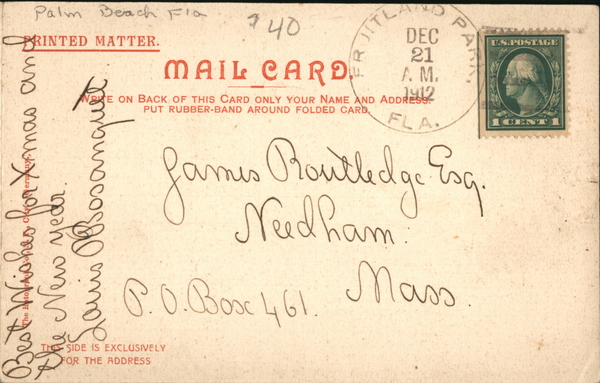 Palm Beach Fla
$40
PRINTED MATTER.
MAIL CARD.
WRITE ON BACK OF THIS CARD ONLY YOUR NAME AND ADDRESS.
PUT RUBBER-BAND AROUND FOLDED CARD.
FRUITLAND PARK,
DEC
21
A.M.
1912
FLA.
U.S. POSTAGE
1 CENT 1
James Routledge Esq.
Needham.
Mass.
P.O. Box 461.
Best Wishes for Xmas and
the New year.
Louis Bosanquet
THIS SIDE IS EXCLUSIVELY
FOR THE ADDRESS